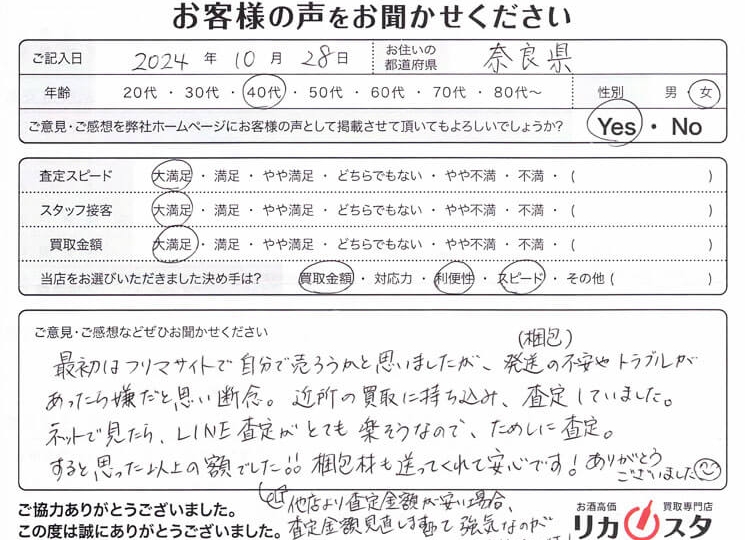 お客様の声をお聞かせください
ご記入日 2024 年 10 月 28 日 お住いの都道府県 奈良県
年齢 20代 ・ 30代 ・ 40代 ・ 50代 ・ 60代 ・ 70代 ・ 80代〜 性別 男 ・ 女
ご意見・ご感想を弊社ホームページにお客様の声として掲載させて頂いてもよろしいでしょうか? Yes ・ No
査定スピード 大満足 ・ 満足 ・ やや満足 ・ どちらでもない ・ やや不満 ・ 不満 ・ ( )
スタッフ接客 大満足 ・ 満足 ・ やや満足 ・ どちらでもない ・ やや不満 ・ 不満 ・ ( )
買取金額 大満足 ・ 満足 ・ やや満足 ・ どちらでもない ・ やや不満 ・ 不満 ・ ( )
当店をお選びいただきました決め手は? 買取金額 ・ 対応力 ・ 利便性 ・ スピード ・ その他 ( )
ご意見・ご感想などぜひお聞かせください
(梱包)
最初はフリマサイトで自分で売ろうかと思いましたが、発送の不安やトラブルが
あったら嫌だと思い断念。近所の買取に持ち込み、査定していました。
ネットで見たら、LINE査定がとても楽そうなので、ためしに査定。
すると思った以上の額でした!! 梱包材も送ってくれて安心です! ありがとう
ございました
他店より査定金額が安い場合、
査定金額見直しますって強気なのが
ご協力ありがとうございました。
この度は誠にありがとうございました。
お酒高価 買取専門店
リカスタ